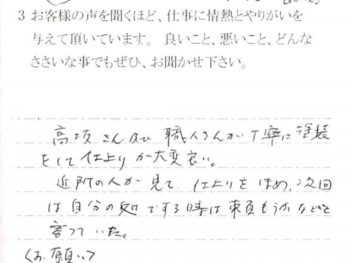 3 お客様の声を聞くほど、仕事に情熱とやりがいを
与えて頂いています。 良いこと、悪いこと、どんな
ささいな事でもぜひ、お聞かせ下さい。
高坂さん 職人さんが丁寧に塗装
をして仕上りが大変良い。
近所の人が見て、仕上りをほめ、次回
は自分の処でする時は などと
言っていた。
(お願い)